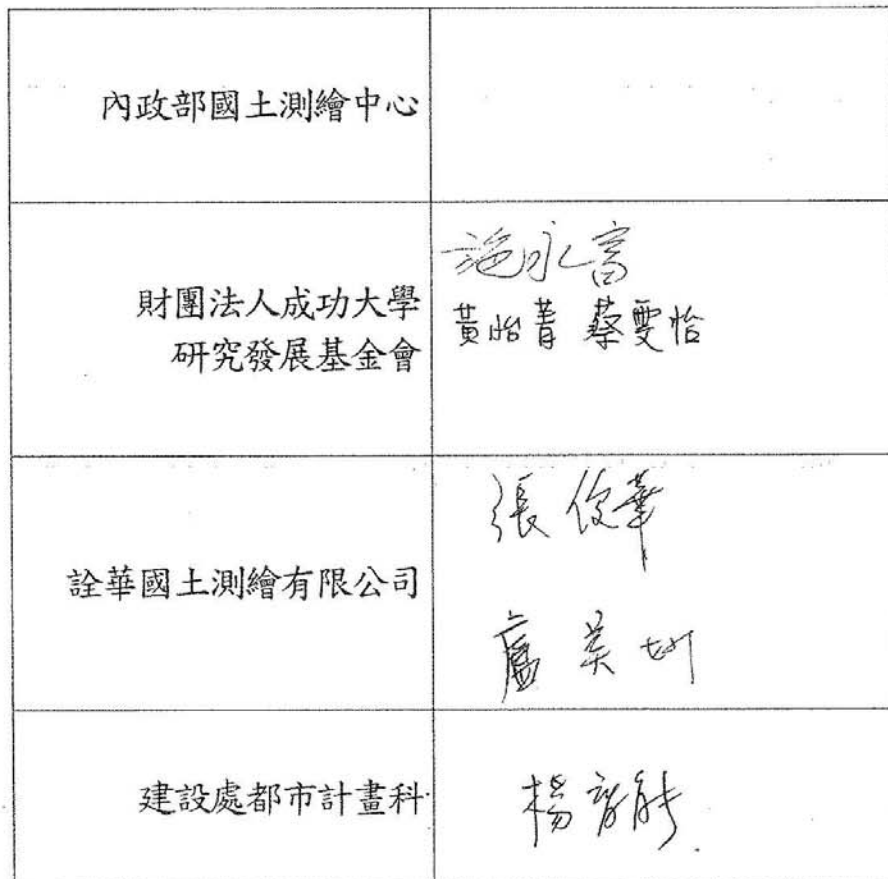 內政部國土測繪中心
財團法人成功大學
研究發展基金會
施永富
黃怡菁 蔡雯怡
詮華國土測繪有限公司
張俊華
盧英
建設處都市計畫科
楊